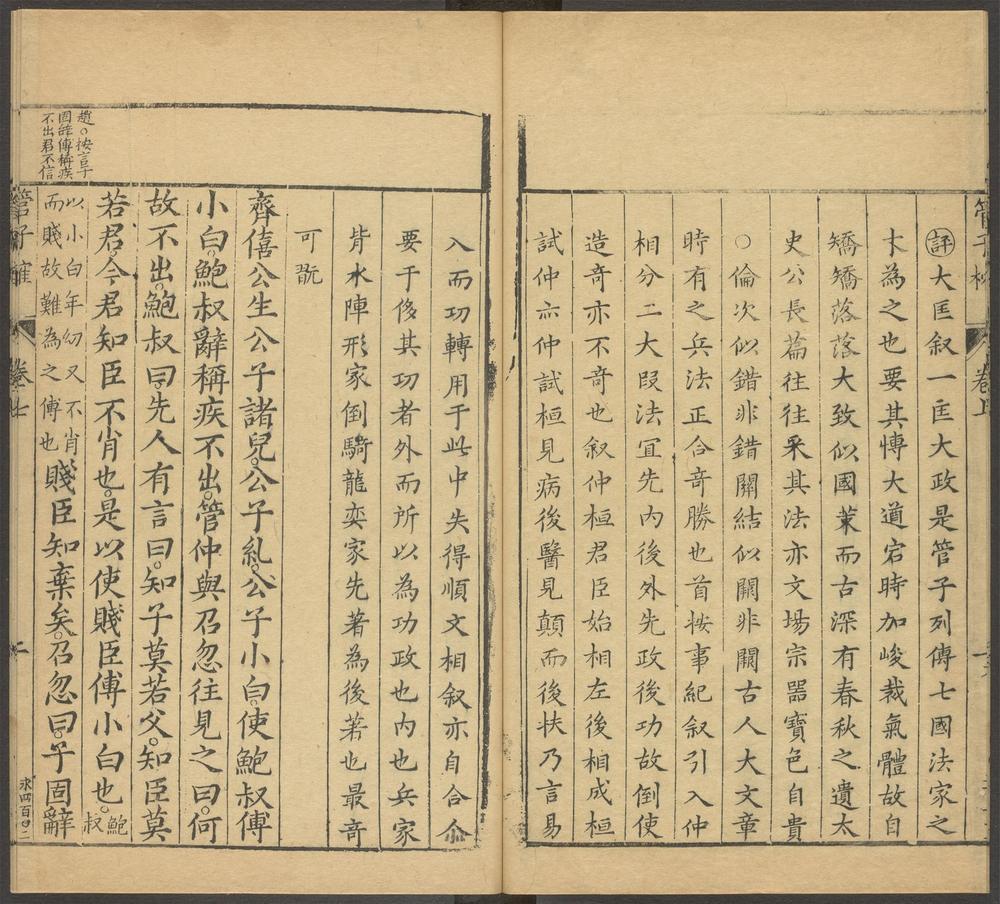 管子榷 卷七
評大匡叙一匡大政是管子列傳七國法家之
士為之也要其博大道宕時加峻裁氣體故自
矯矯落落大致似國策而古深有春秋之遺太
史公長篇往往采其法亦文塲宗器寶色自貴
○倫次似錯非錯關結似關非關古人大文章
時有之兵法正合竒勝也首按事紀叙引入仲
相分二大叚法冝先内後外先政後功故倒使
造竒亦不竒也叙仲桓君臣始相左後相成桓
試仲亦仲試桓見病後醫見顛而後扶乃言易
入而功轉用于此中失得順文相叙亦自合
要于侈其功者外而所以為功政也内也兵家
背水陣形家倒騎龍奕家先著為後著也最竒
可翫
齊僖公生公子諸兒公子糺公子小白使鮑叔傅
小白鮑叔辭稱疾不出管仲與召忽往見之曰何
故不出鮑叔曰先人有言曰知子莫若父知臣莫
若君今君知臣不肖也是以使賤臣傅小白也鮑叔
以小白年幼又不肖而賤故難為之傅也賤臣知棄矣召忽曰子固辭
趙○按言子
固辭傅稱疾
不出君不信
管子榷 卷七